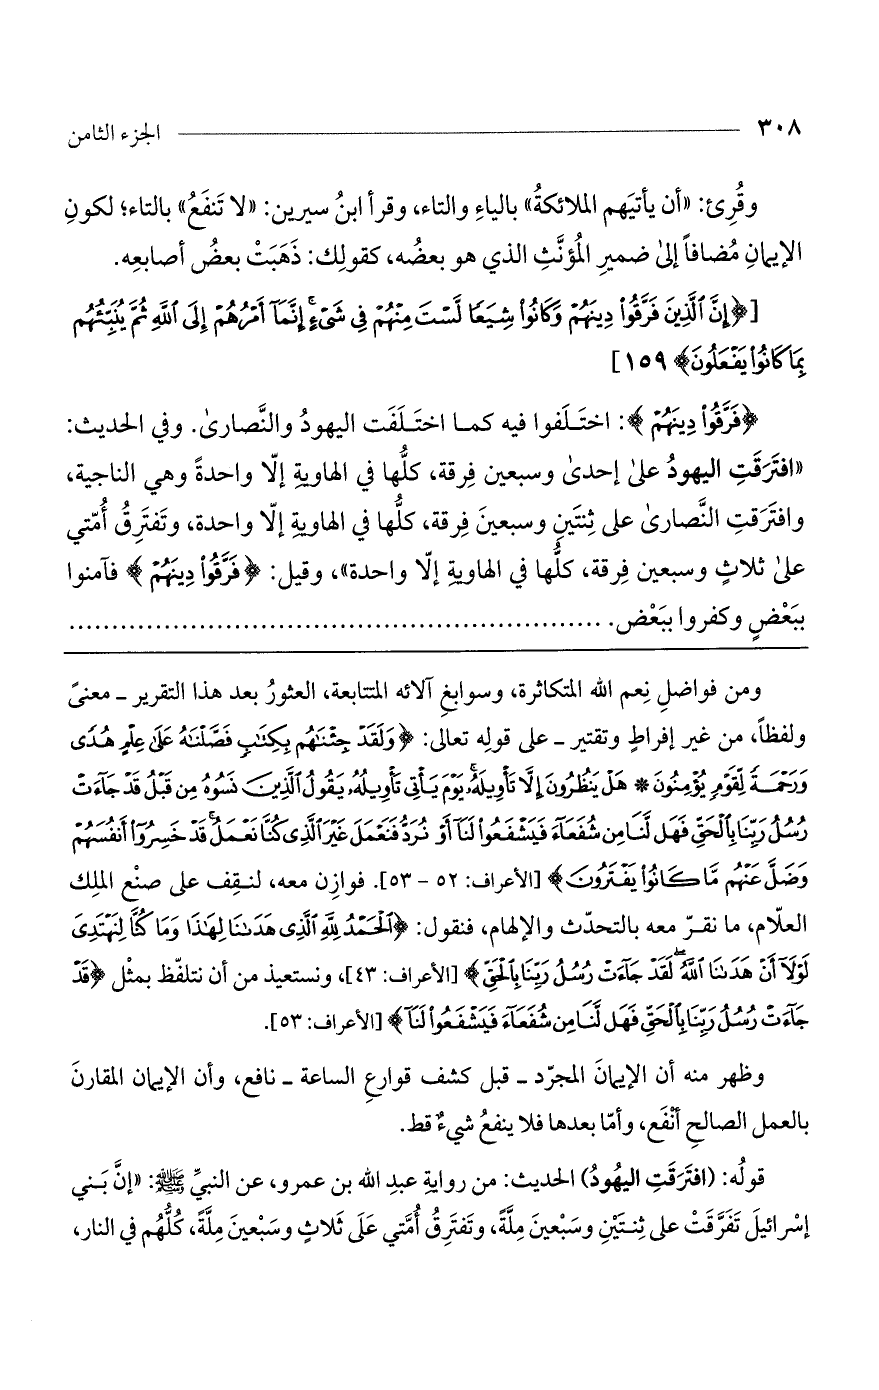 ٣٠٨ الجزء الثامن
وقُرِئ: «أن يأتيَهم الملائكةُ» بالياءِ والتاء، وقرأ ابنُ سيرين: «لا تَنفَعُ» بالتاء؛ لكونِ
الإيمانِ مُضافاً إلىٰ ضميرِ المُؤنَّثِ الذي هو بعضُه، كقولِك: ذَهَبَتْ بعضُ أصابعِه.
[﴿إِنَّ ٱلَّذِينَ فَرَّقُوا۟ دِينَهُمْ وَكَانُوا۟ شِيَعًا لَّسْتَ مِنْهُمْ فِى شَىْءٍ ۚ إِنَّمَآ أَمْرُهُمْ إِلَى ٱللَّهِ ثُمَّ يُنَبِّئُهُم
بِمَا كَانُوا۟ يَفْعَلُونَ﴾ ١٥٩]
﴿فَرَّقُوا۟ دِينَهُمْ﴾: اختَـلَفوا فيه كمـا اختَـلَفَت اليهودُ والنَّصارىٰ. وفي الحديث:
«افتَرَقَتِ اليهودُ علىٰ إحدىٰ وسبعين فِرقة، كلُّها في الهاويةِ إلّا واحدةً وهي الناجية،
وافتَرَقتِ النَّصارىٰ على ثِنتَينِ وسبعينَ فِرقة، كلُّها في الهاويةِ إلّا واحدة، وتَفتَرِقُ أُمّتي
علىٰ ثلاثٍ وسبعين فِرقة، كلُّها في الهاويةِ إلّا واحدة»، وقيل: ﴿فَرَّقُوا۟ دِينَهُمْ﴾ فآمنوا
ببَعْضٍ وكفروا ببَعْض. ..............................................................
ومن فواضلِ نِعم الله المتكاثرة، وسوابغِ آلائه المتتابعة، العثورُ بعد هذا التقرير ـ معنىً
ولفظاً، من غير إفراطٍ وتقتير ـ على قولِه تعالى: ﴿وَلَقَدْ جِئْنَٰهُم بِكِتَٰبٍ فَصَّلْنَٰهُ عَلَىٰ عِلْمٍ هُدًى
وَرَحْمَةً لِّقَوْمٍ يُؤْمِنُونَ * هَلْ يَنظُرُونَ إِلَّا تَأْوِيلَهُۥ ۚ يَوْمَ يَأْتِى تَأْوِيلُهُۥ يَقُولُ ٱلَّذِينَ نَسُوهُ مِن قَبْلُ قَدْ جَآءَتْ
رُسُلُ رَبِّنَا بِٱلْحَقِّ فَهَل لَّنَا مِن شُفَعَآءَ فَيَشْفَعُوا۟ لَنَآ أَوْ نُرَدُّ فَنَعْمَلَ غَيْرَ ٱلَّذِى كُنَّا نَعْمَلُ ۚ قَدْ خَسِرُوٓا۟ أَنفُسَهُمْ
وَضَلَّ عَنْهُم مَّا كَانُوا۟ يَفْتَرُونَ﴾ [الأعراف: ٥٢ - ٥٣]. فوازِن معه، لنـقِف على صنْع الملِك
العلّام، ما نقـرّ معه بالتحدّث والإلهام، فنقول: ﴿ٱلْحَمْدُ لِلَّهِ ٱلَّذِى هَدَىٰنَا لِهَٰذَا وَمَا كُنَّا لِنَهْتَدِىَ
لَوْلَآ أَنْ هَدَىٰنَا ٱللَّهُ ۖ لَقَدْ جَآءَتْ رُسُلُ رَبِّنَا بِٱلْحَقِّ﴾ [الأعراف: ٤٣]، ونستعيذ من أن نتلفّظ بمثْل ﴿قَدْ
جَآءَتْ رُسُلُ رَبِّنَا بِٱلْحَقِّ فَهَل لَّنَا مِن شُفَعَآءَ فَيَشْفَعُوا۟ لَنَآ﴾ [الأعراف: ٥٣].
وظهر منه أن الإيمانَ المجرّد ـ قبل كشف قوارعِ الساعة ـ نافع، وأن الإيمان المقارنَ
بالعمل الصالحِ أنْفَع، وأمّا بعدها فلا ينفعُ شيءٌ قط.
قولُه: (افتَرَقَتِ اليهُودُ) الحديث: من روايةِ عبدِ الله بن عمرو، عن النبيِّ ﷺ: «إنَّ بَـني
إسْرائيلَ تَفَرَّقَتْ على ثِنـتَـيْنِ وسَبْعينَ مِلَّةً، وتَفتَرِقُ أُمَّتي عَلَى ثَلاثٍ وسَبْعينَ مِلَّةً، كُلُّهُم في النار،